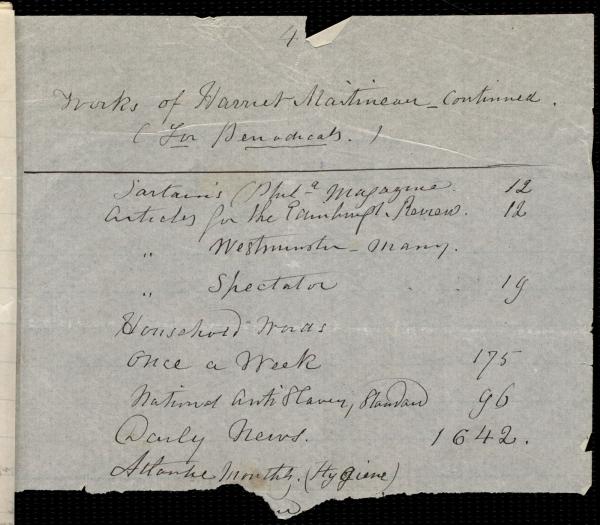 4
Works of Harriet Martineau - Continued.
(For Periodicals.)
Sartain's Phil.a Magazine. 12
Articles for the Edinburgh Review. 12
" Westminster - many.
" Spectator 19
Household Words
Once a Week 175
National Anti Slavery Standard 96
Daily News. 1642.
Atlantic Monthly. (Hygiene)